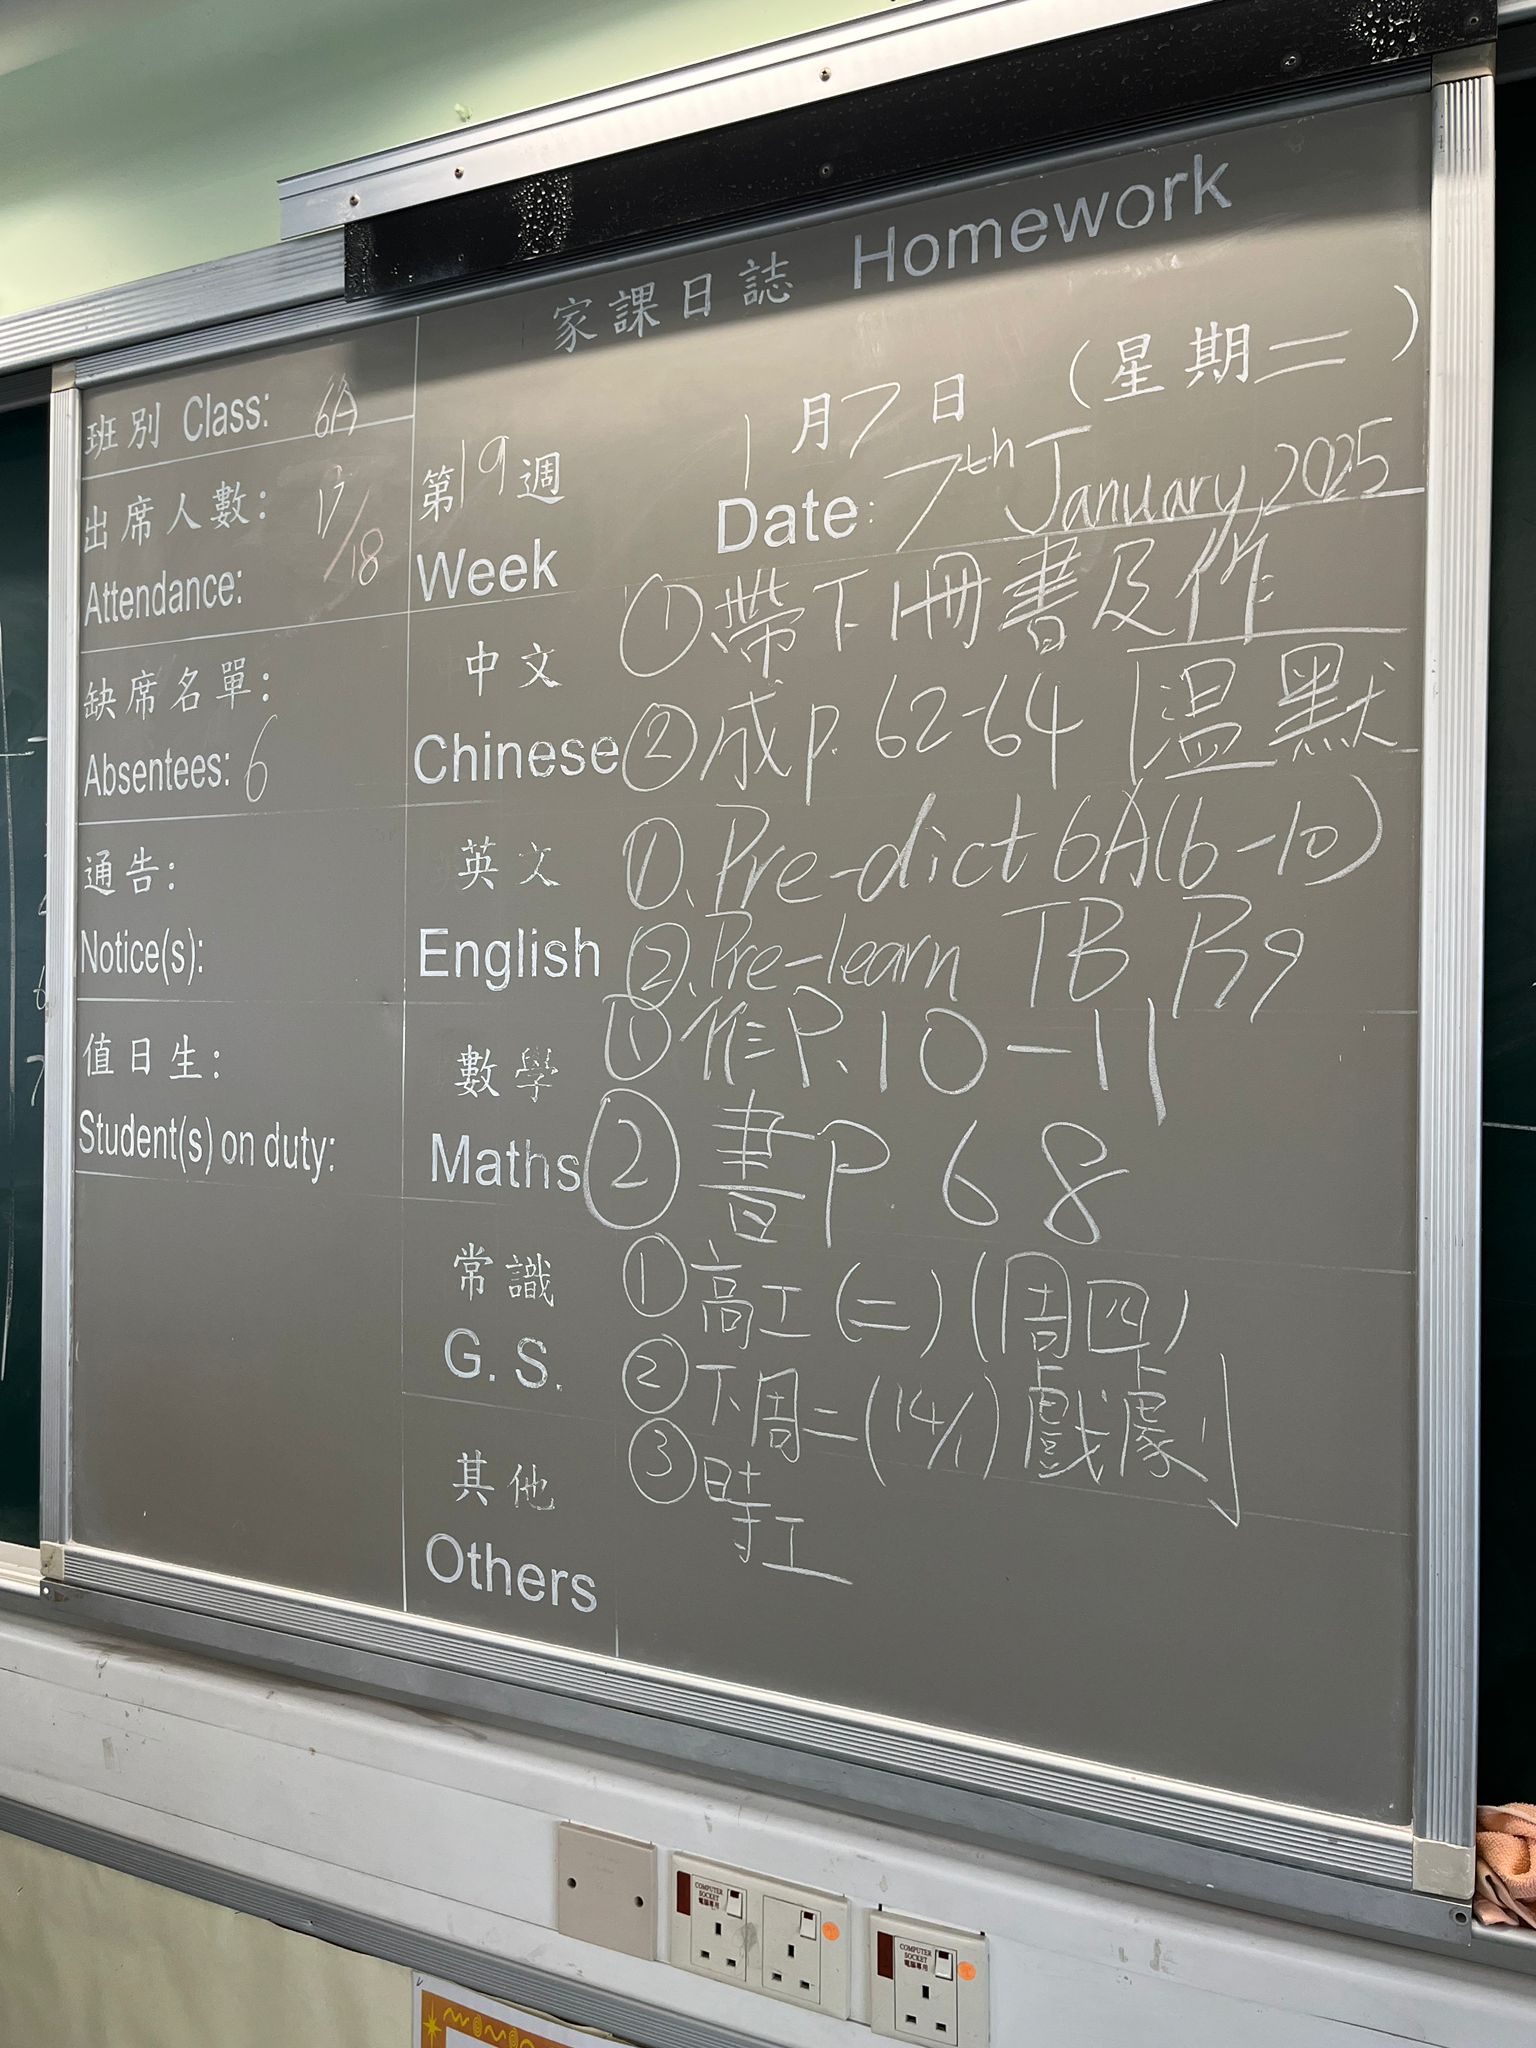 家課日誌 Homework
班別 Class: 6A
出席人數: 17/18
Attendance:
缺席名單:
Absentees: 6
通告:
Notice(s):
值日生:
Student(s) on duty:
第19週
Week
1月7日 (星期二)
Date: 7th January, 2025
中文
Chinese
①帶下冊書及作
②成p.62-64 |溫默
英文
English
①.Pre-dict 6A(6-10)
②.Pre-learn TB P.79
數學
Maths
①作P.10-11
②書P.68
常識
G.S.
①高工(二)(周四)
②下周二(14/1)戲劇
③時工
其他
Others
COMPUTER
SOCKET
電腦專用
COMPUTER
SOCKET
電腦專用